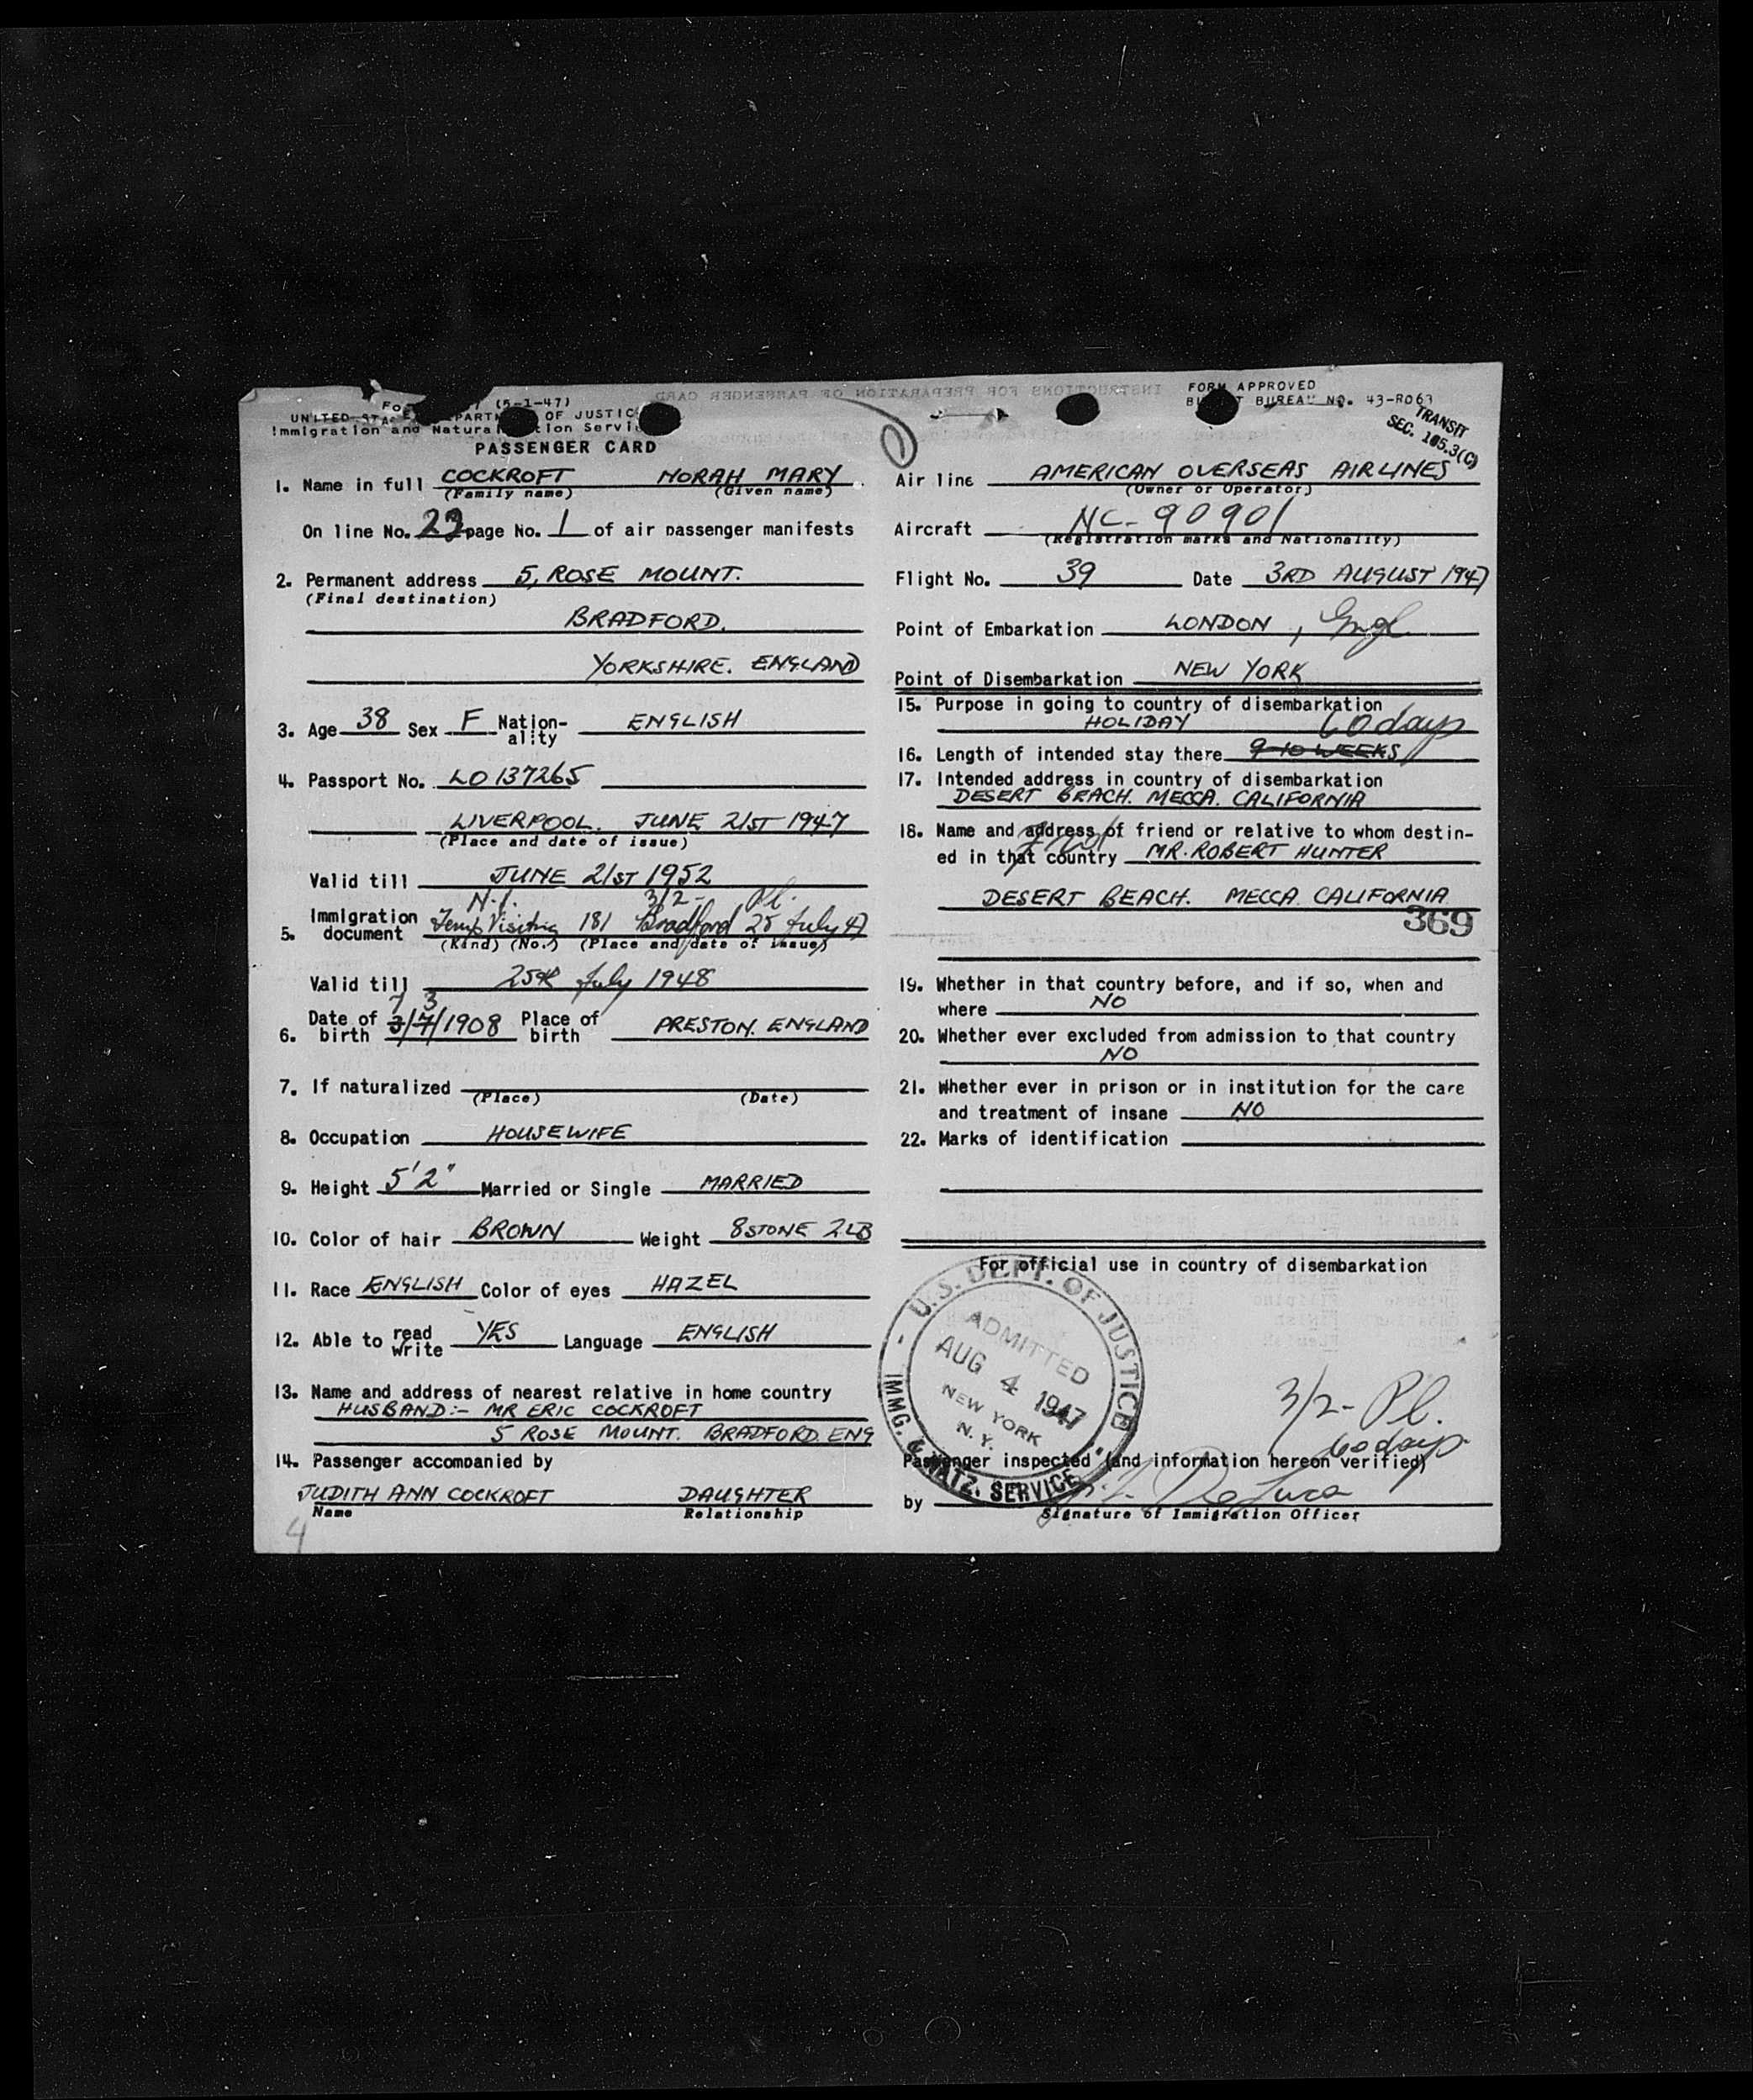 (5-1-47)
OF JUSTIC
Immigration and Natura tion Servi
PASSENGER CARD
1. Name in full COCKROFT NORAH MARY
(Family name) (Given name)
On line No. page No. 1 of air passenger manifests
2. Permanent address 5, ROSE MOUNT.
(Final destination)
BRADFORD.
YORKSHIRE. ENGLAND
3. Age 38 Sex F Nation-ality ENGLISH
4. Passport No. LO 137265
LIVERPOOL. JUNE 21ST 1947
(Place and date of issue)
Valid till JUNE 21ST 1952
N.I. 3/2- Pl.
5. Immigration document Temp Visiting 181 Bradford 25 July 47
(Kind) (No.) (Place and date of issue)
Valid till 25th July 1948
7 3
6. Date of birth 3/7/1908 Place of birth PRESTON. ENGLAND
7. If naturalized
(Place) (Date)
8. Occupation HOUSEWIFE
9. Height 5'2" Married or Single MARRIED
10. Color of hair BROWN Weight 8 STONE 2LB
11. Race ENGLISH Color of eyes HAZEL
12. Able to read write YES Language ENGLISH
13. Name and address of nearest relative in home country
HUSBAND:- MR ERIC COCKROFT
5 ROSE MOUNT. BRADFORD. ENG
14. Passenger accompanied by
JUDITH ANN COCKROFT DAUGHTER
Name Relationship
4
INSTRUCTIONS FOR PREPARATION OF PASSENGER CARD
FORM APPROVED
BUREAU NO. 43-R063
TRANSIT
SEC. 165.3(C)
Air line AMERICAN OVERSEAS AIRLINES
(Owner or Operator)
Aircraft NC-90901
(Registration marks and Nationality)
Flight No. 39 Date 3RD AUGUST 1947
Point of Embarkation LONDON, Engl.
Point of Disembarkation NEW YORK
15. Purpose in going to country of disembarkation
HOLIDAY 60 days
16. Length of intended stay there 9-10 WEEKS
17. Intended address in country of disembarkation
DESERT BEACH. MECCA. CALIFORNIA
18. Name and address of friend or relative to whom destin-
ed in that country MR. ROBERT HUNTER
DESERT BEACH. MECCA. CALIFORNIA
369
19. Whether in that country before, and if so, when and
where NO
20. Whether ever excluded from admission to that country
NO
21. Whether ever in prison or in institution for the care
and treatment of insane NO
22. Marks of identification
For official use in country of disembarkation
U.S. DEPT. OF JUSTICE
ADMITTED
AUG 4 1947
NEW YORK
N.Y.
IMMG. & NATZ. SERVICE
3/2- Pl.
60 days
Passenger inspected (and information hereon verified)
by De Luca
Signature of Immigration Officer